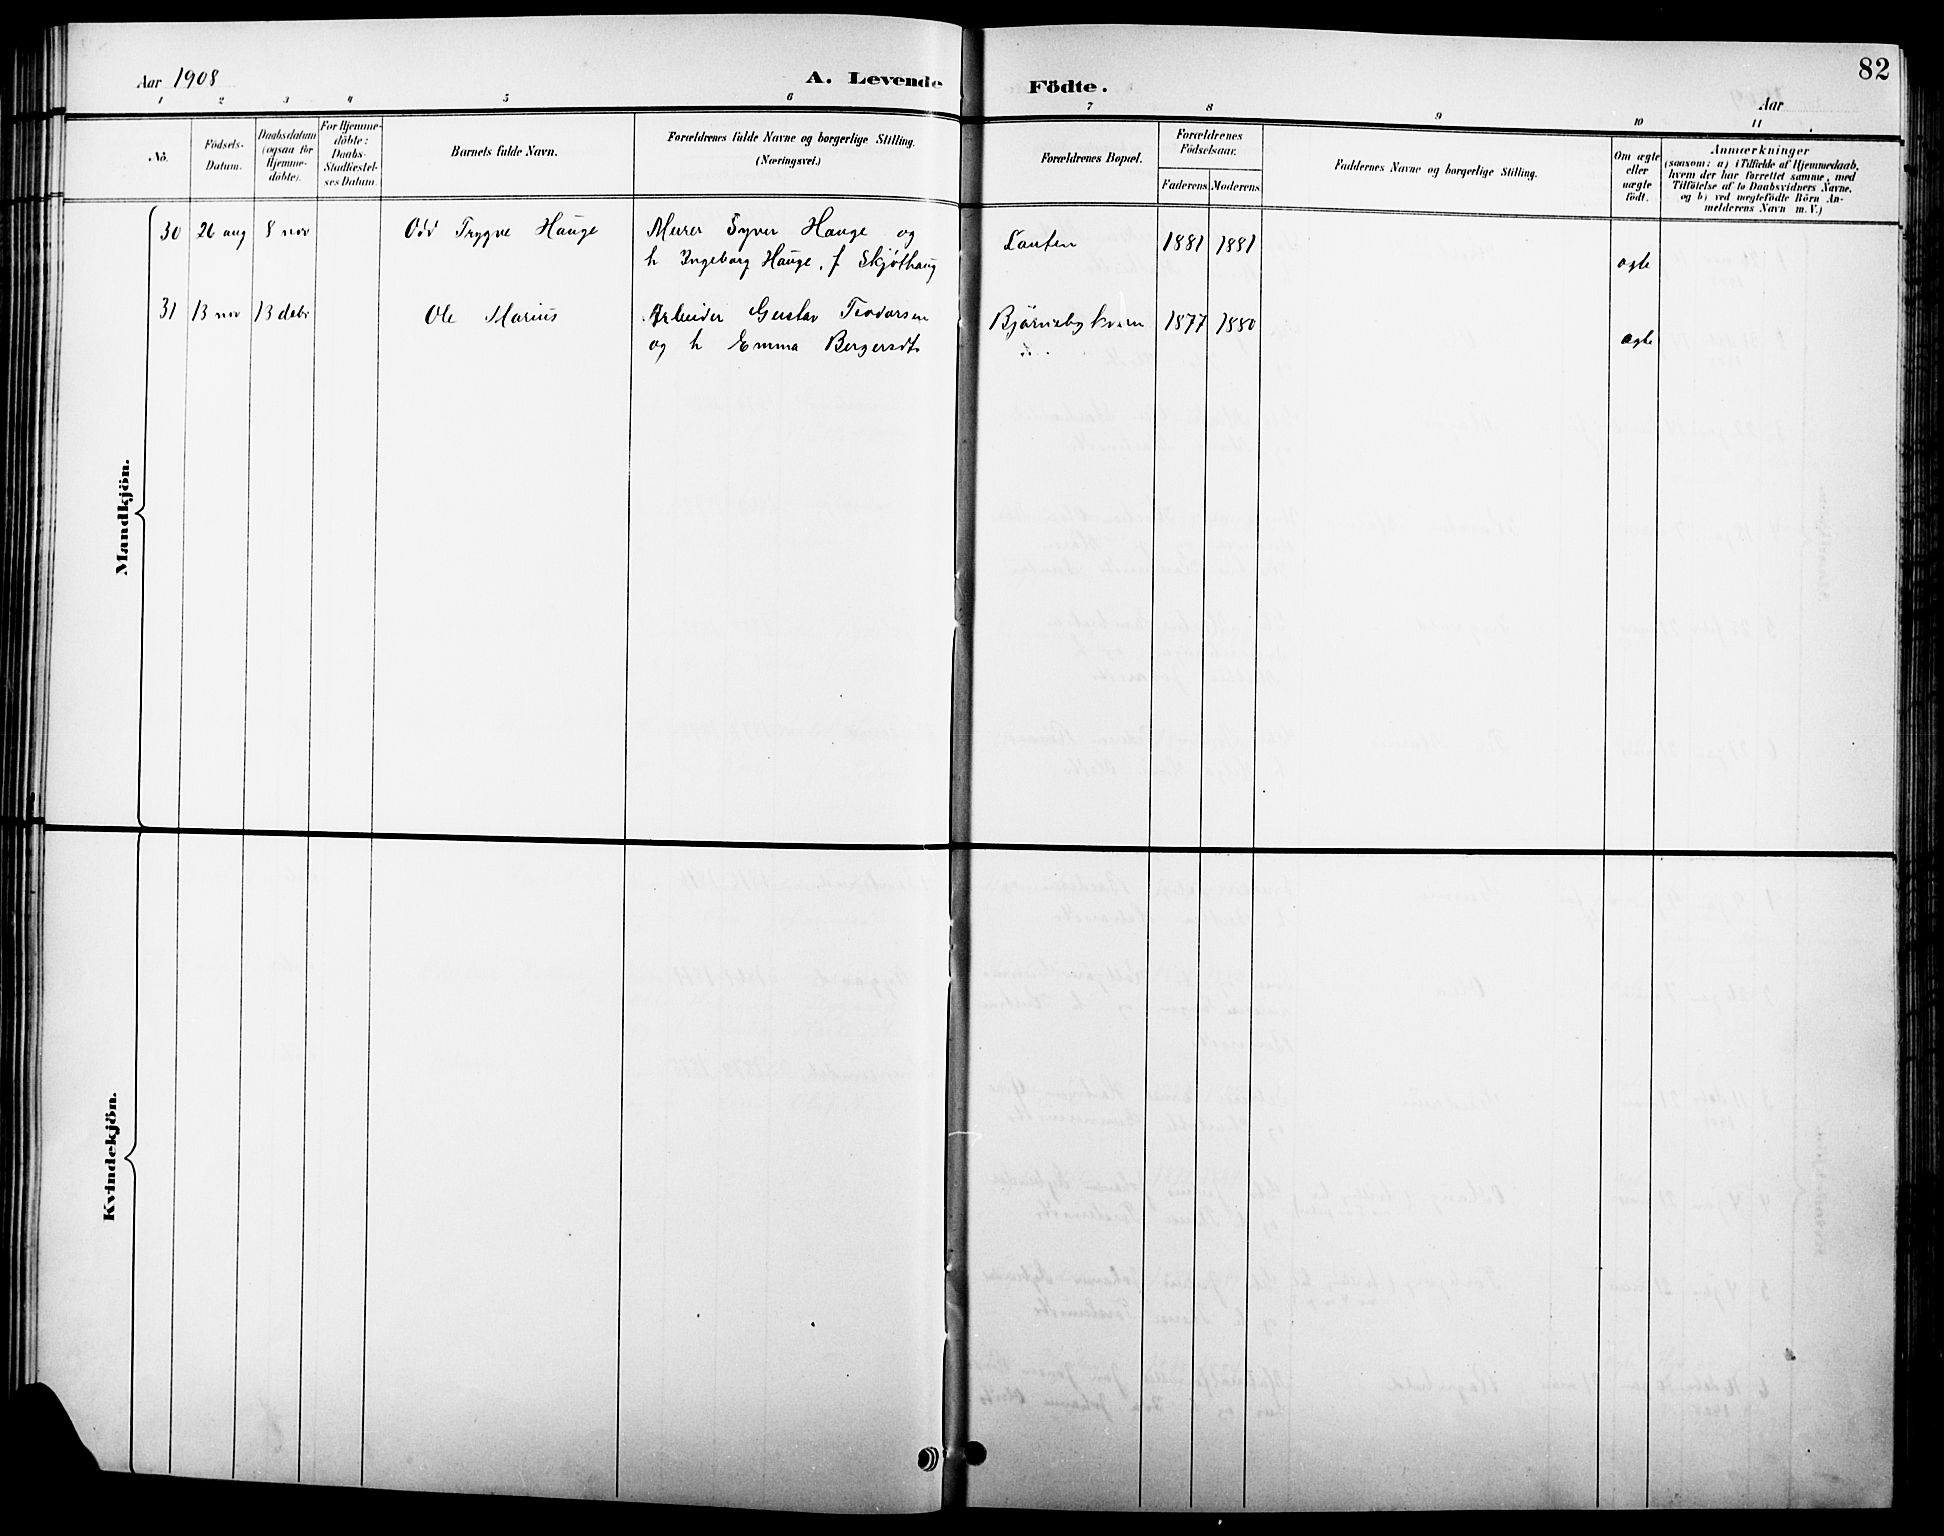 Aar 1908
A. Levende
Födte.
82
Aar
1 2 3 4 5 6 7 8 9 10 11
No.
Födsels-
Datum.
Daabsdatum
(ogsaa for
Hjemme-
döbte).
For Hjemme-
döbte:
Daabs-
Stadfæstel-
ses Datum.
Barnets fulde Navn.
Forældrenes fulde Navne og borgerlige Stilling.
(Næringsvei.)
Forældrenes Bopæl.
Forældrenes
Födselsaar.
Faderens
Moderens
Faddernes Navne og borgerlige Stilling.
Om ægte
eller
uægte
födt.
Anmærkninger
(saasom: a) i Tilfælde af Hjemmedaab,
hvem der har forrettet samme, med
Tilföielse af to Daabsvidners Navne,
og b) ved uægtefödte Börn An-
melderens Navn m. V.)
Mandkjön.
30 26 aug 8 nov Odd Trygve Hauge Murer Syver Hauge og Løuten 1881 1881
h Ingeborg Hauge, f Skjøthaug ægte
31 13 nov 13 debr Ole Marius Arbeider Gustav Teodorsen Bjørnebykvern 1877 1880
og h Emma Bergersdtr ægte
Kvindekjön.